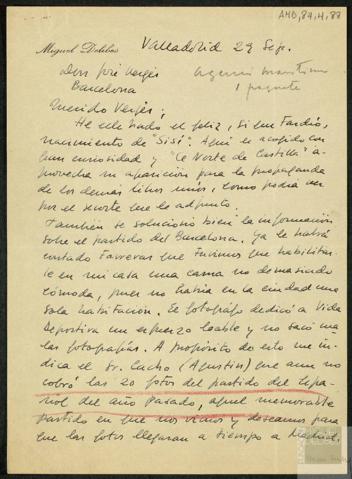 AMD,84,4,88
Miguel Delibes
Valladolid 29 Sep.
Don José Vergés
Barcelona
1 paquete
Querido Vergés:
He celebrado el feliz, si bien tardío,
nacimiento de "Sisí". Aquí es acogido con
gran curiosidad y "El Norte de Castilla" a-
provecha su aparición para la propaganda
de los demás libros míos, como podrá ver
por el recorte que le adjunto.
También se solucionó bien la información
sobre el partido del Barcelona. Ya le habrá
contado Farreras que tuvimos que habilitar-
le en mi casa una cama no demasiado
cómoda, pues no había en la ciudad una
sola habitación. El fotógrafo dedicó a Vida
Deportiva un esfuerzo loable y no sacó ma-
las fotografías. A propósito de esto me in-
dica el Sr. Cacho (Agustín) que aun no
cobró las 20 fotos del partido del Espa-
ñol del año pasado, aquel memorable
partido en que nos vimos y deseamos para
que las fotos llegaran a tiempo a Madrid.